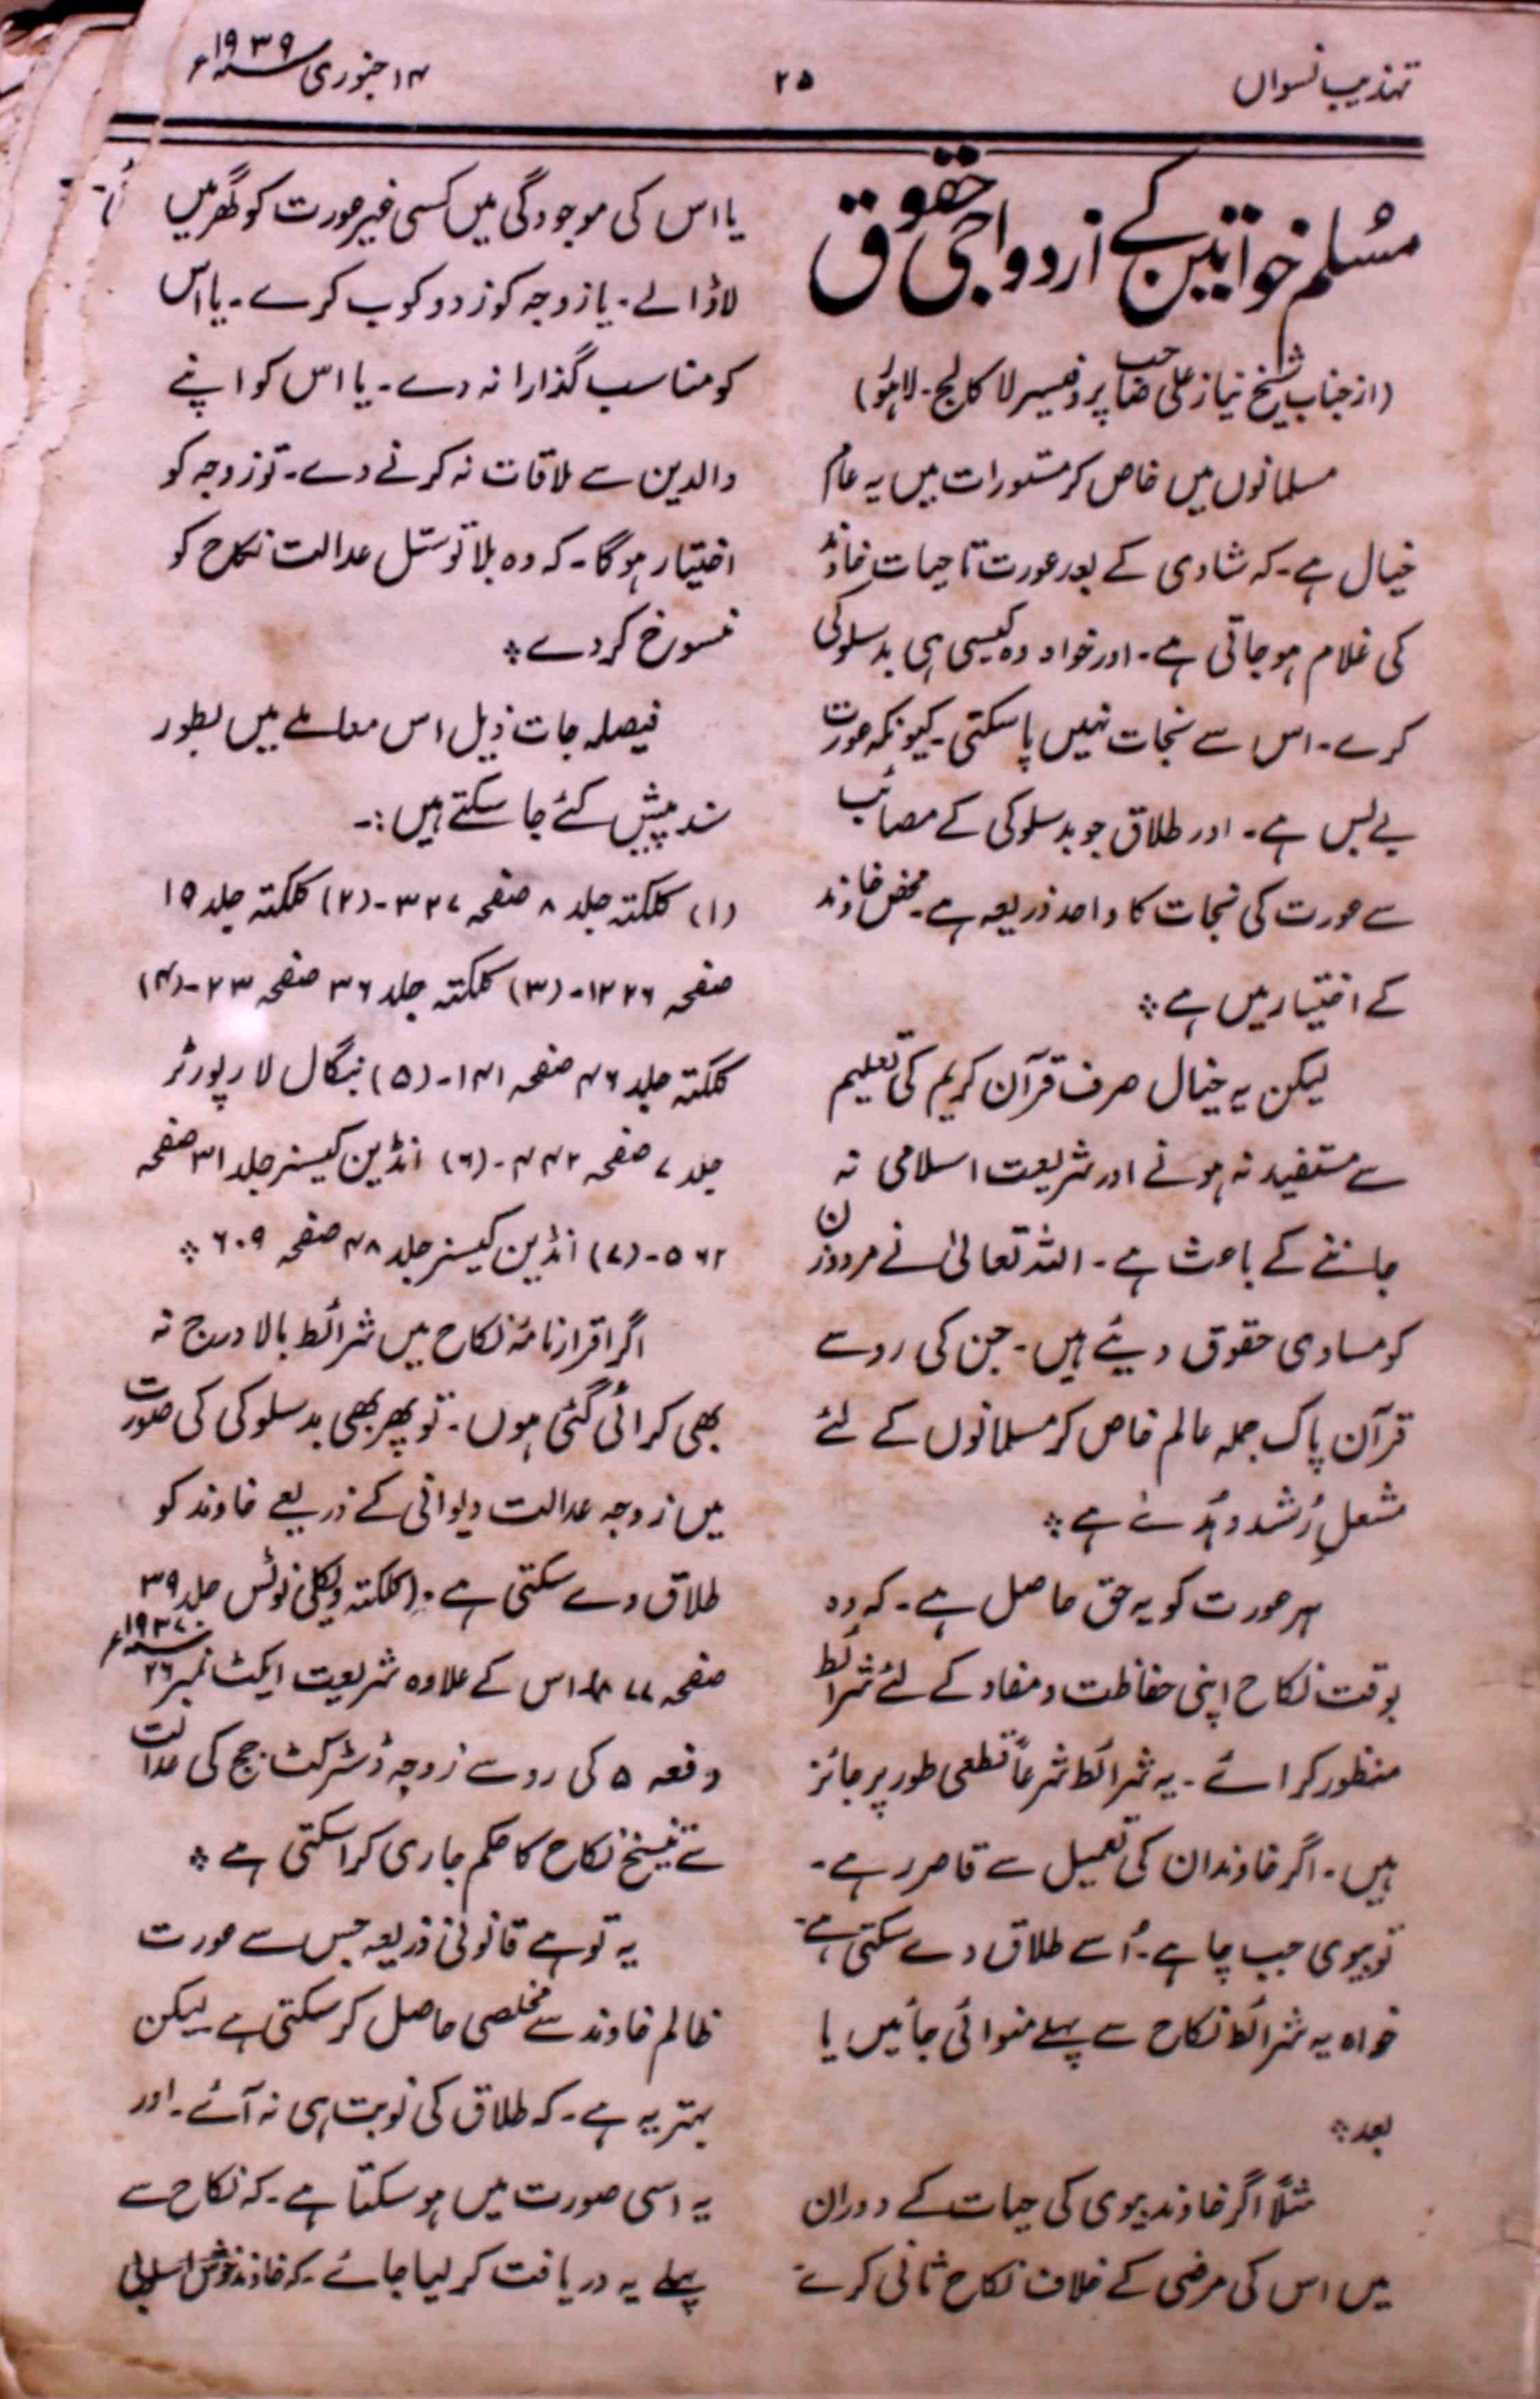 تہذیب نسواں
۲۵
۱۴ جنوری ۱۹۳۹ء
مُسلم خواتین کے ازدواجی حقوق
(از جناب شیخ نیاز علی صاحب پروفیسر لا کالج۔ لاہور)
مسلمانوں میں خاص کر مستورات میں یہ عام
خیال ہے۔ کہ شادی کے بعد عورت تا حیات خاوند
کی غلام ہو جاتی ہے۔ اور خواہ وہ کیسی ہی بدسلوکی
کرے۔ اس سے نجات نہیں پا سکتی۔ کیونکہ عورت
بے بس ہے۔ اور طلاق جو بدسلوکی کے مصائب
سے عورت کی نجات کا واحد ذریعہ ہے۔ محض خاوند
کے اختیار میں ہے ٭
لیکن یہ خیال صرف قرآن کریم کی تعلیم
سے مستفید نہ ہونے اور شریعت اسلامی نہ
جاننے کے باعث ہے۔ اللہ تعالیٰ نے مرد و زن
کو مساوی حقوق دیئے ہیں۔ جن کی رو سے
قرآن پاک جملہ عالم خاص کر مسلمانوں کے لئے
مشعلِ رُشد و ہُدےٰ ہے ٭
ہر عورت کو یہ حق حاصل ہے۔ کہ وہ
بوقت نکاح اپنی حفاظت و مفاد کے لئے شرائط
منظور کرائے۔ یہ شرائط شرعاً قطعی طور پر جائز
ہیں۔ اگر خاوند ان کی تعمیل سے قاصر رہے۔
تو بیوی جب چاہے۔ اُسے طلاق دے سکتی ہے۔
خواہ یہ شرائط نکاح سے پہلے منوائی جائیں یا
بعد ٭
مثلاً اگر خاوند بیوی کی حیات کے دوران
میں اس کی مرضی کے خلاف نکاح ثانی کرے۔
یا اس کی موجودگی میں کسی غیر عورت کو گھر میں
لا ڈالے۔ یا زوجہ کو زدوکوب کرے۔ یا اس
کو مناسب گذارا نہ دے۔ یا اس کو اپنے
والدین سے ملاقات نہ کرنے دے۔ تو زوجہ کو
اختیار ہوگا۔ کہ وہ بلا توسّل عدالت نکاح کو
منسوخ کردے ٭
فیصلہ جات ذیل اس معاملے میں بطور
سند پیش کئے جا سکتے ہیں:۔
(۱) کلکتہ جلد ۸ صفحہ ۳۲۷۔ (۲) کلکتہ جلد ۱۵
صفحہ ۱۲۲۶۔ (۳) کلکتہ جلد ۳۶ صفحہ ۲۳۔ (۴)
کلکتہ جلد ۴۶ صفحہ ۱۴۱۔ (۵) بنگال لا رپورٹر
جلد ۷ صفحہ ۴۴۲۔ (۶) انڈین کیسنر جلد ۳۱ صفحہ
۵۶۲۔ (۷) انڈین کیسنر جلد ۴۸ صفحہ ۶۰۹ ٭
اگر اقرارنامۂ نکاح میں شرائط بالا درج نہ
بھی کرائی گئی ہوں۔ تو پھر بھی بدسلوکی کی صورت
میں زوجہ عدالت دیوانی کے ذریعے خاوند کو
طلاق دے سکتی ہے۔ (کلکتہ ویکلی نوٹس جلد ۳۹
صفحہ اس کے علاوہ شریعت ایکٹ نمبر ۲۶ ۱۹۳۷ء
دفعہ ۵ کی رو سے زوجہ ڈسٹرکٹ جج کی عدالت
سے تنسیخ نکاح کا حکم جاری کرا سکتی ہے ٭
یہ تو ہے قانونی ذریعہ جس سے عورت
ظالم خاوند سے مخلصی حاصل کر سکتی ہے لیکن
بہتر یہ ہے۔ کہ طلاق کی نوبت ہی نہ آئے۔ اور
یہ اسی صورت میں ہو سکتا ہے۔ کہ نکاح سے
پہلے یہ دریافت کر لیا جائے۔ کہ خاوند خوش اسلوبی